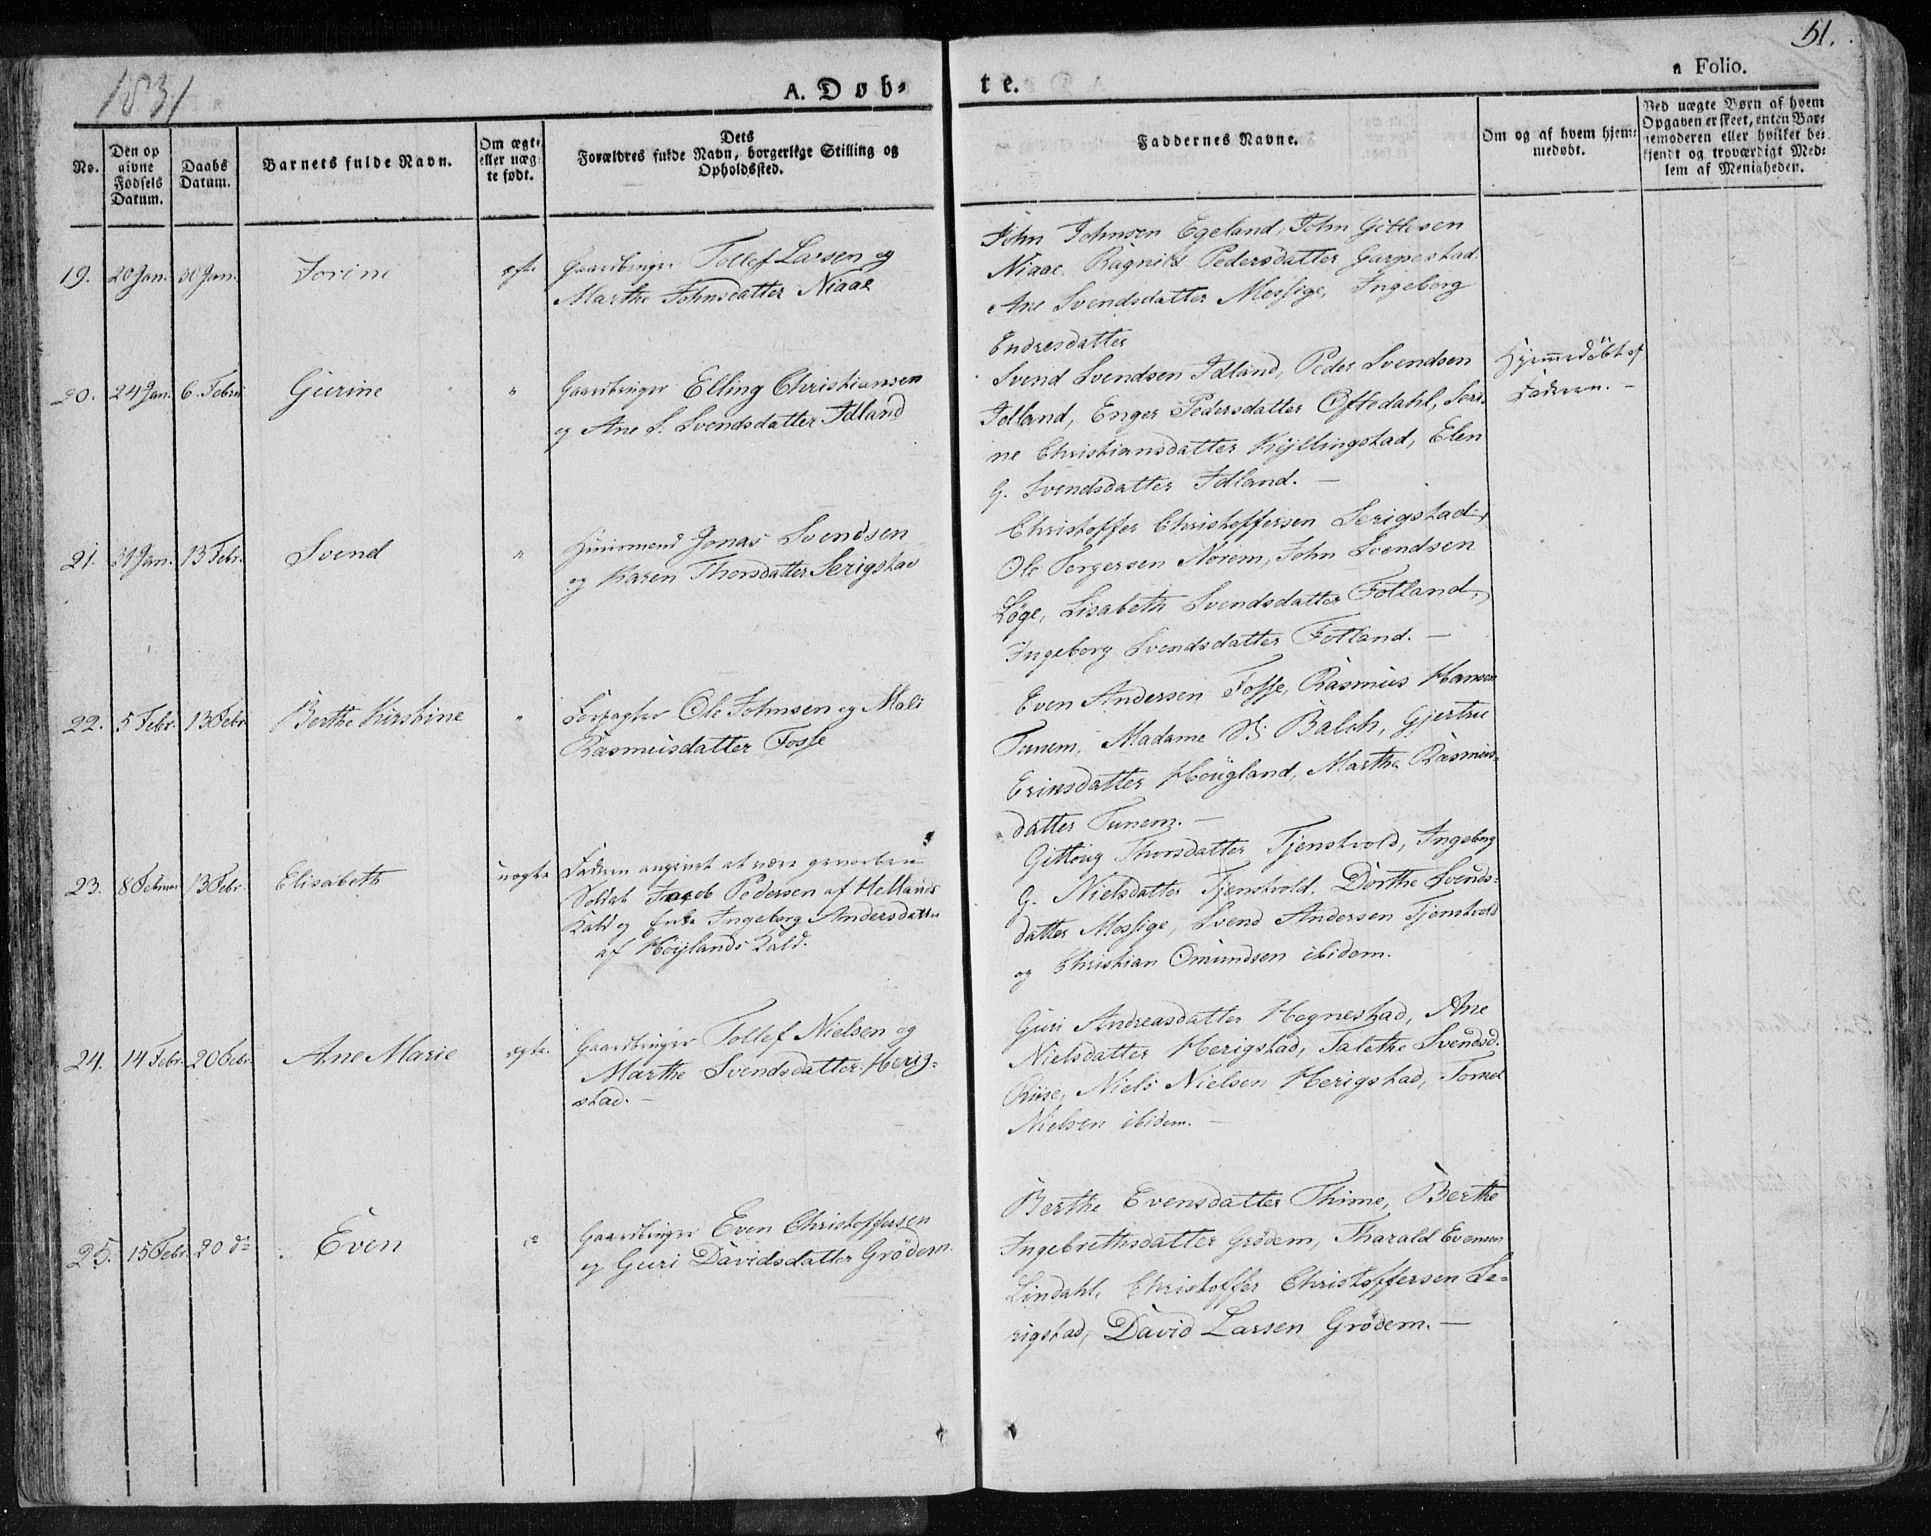 1831
A. Døb-
te.
51.
a Folio.
No.
Den op
givne
Fødsels
Datum.
Daabs
Datum.
Barnets fulde Navn.
Om ægte
eller uæg-
te født.
Dets
Forældres fulde Navn, borgerlige Stilling og
Opholdssted.
Faddernes Navne.
Om og af hvem hjem-
medøbt.
Ved uægte Børn af hvem
Opgaven er skeet, enten Bar-
nemoderen eller hvilket be-
kjendt og troværdigt Med-
lem af Menigheden.
19. 20 Jan. 30 Jan. Jorine ægte
Gaardbruger Tollef Larsen og
Marthe Johnsdatter Niaae
John Johnsen Egeland, John Gitlesen
Niaae, Ragnild Pedersdatter Garpestad
Ane Svendsdatter Mossige, Ingeborg
Endresdatter
20. 24 Jan. 6 Febru Gurine "
Gaardbruger Elling Christiansen
og Ane S. Svendsdatter Idland
Svend Svendsen Idland, Peder Svendsen
Idland, Enger Pedersdatter Oftedahl, Seri-
ne Christiansdatter Kyllingstad, Elen
G. Svendsdatter Idland. —
Hjemmedøbt af
Faderen. —
21. 31 Jan. 13 Febr. Svend "
Huusmand Jonas Svendsen
og Karen Thorsdatter Serigstad
Christoffer Christoffersen Serigstad,
Ole Torgersen Norem, John Svendsen
Løge, Lisabeth Svendsdatter Fotland,
Ingeborg Svendsdatter Fotland. —
22. 5 Febr. 13 Febr Berthe Kirstine "
Forpagter Ole Johnsen og Mali
Rasmusdatter Fosse
Even Andersen Fosse, Rasmus Hansen
Tunem, Madame Balch, Gjertru
Erinsdatter Høugland, Marthe Rasmus-
datter Tunem. —
23. 8 Februar 13 Febr Elisabeth uægte
Faderen angivet at være geworben
Soldat Jacob Pedersen af Hetlands
Kald og Enke Ingeborg Andersdatter
af Høylands Kald.
Gittoug Thorsdatter Tjenstvold, Ingeborg
G. Nielsdatter Tjenstvold, Dorthe Svends-
datter Mossige, Svend Andersen Tjenstvold
og Christian Omundsen ibidem.
24. 14 Febr. 20 Febr. Ane Marie ægte.
Gaardbruger Tollef Nielsen og
Marthe Svendsdatter Herig-
stad. —
Guri Andreasdatter Hognestad, Ane
Nielsdatter Herigstad, Talethe Svendsd.
Riise, Niels Nielsen Herigstad, Tormod
Nielsen ibidem. —
25. 15 Febr. 20 do Even do
Gaardbruger Even Christoffersen
og Guri Davidsdatter Grødem.
Berthe Evensdatter Thime, Berthe
Ingebrethsdatter Grødem, Tharald Evensen
Lindahl, Christoffer Christoffersen Se-
rigstad, David Larsen Grødem. —